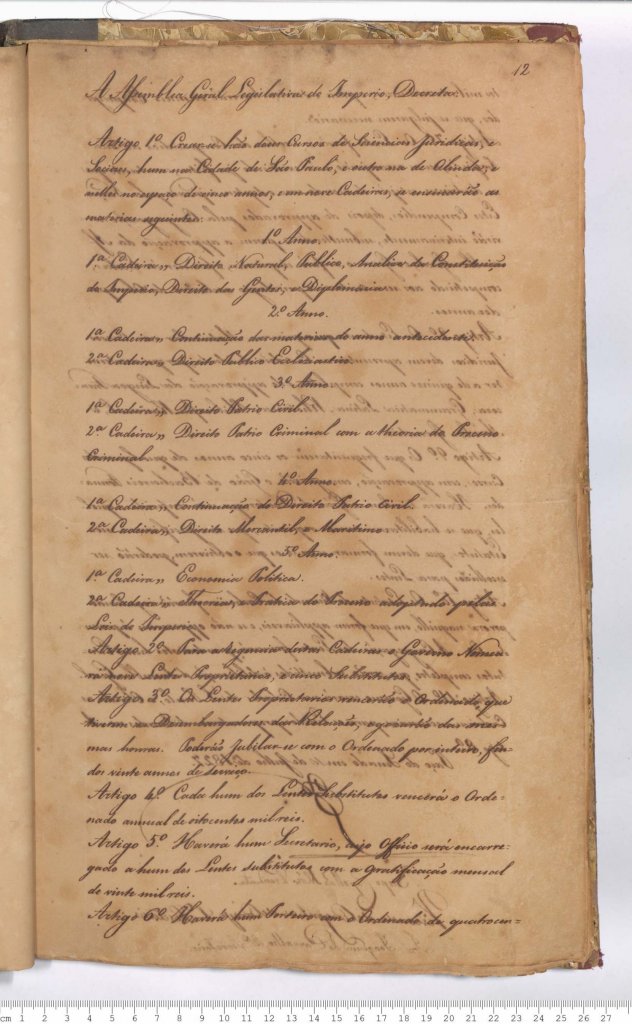 12
A Assemblea Geral Legislativa do Imperio, Decreta:
Artigo 1º Crear-se hão dous Cursos de Sciencias Juridicas, e
Sociaes, hum na Cidade de São Paulo, e outro na de Olinda, e
nelles no espaço de cinco annos, e em nove Cadeiras, se ensinarão as
materias seguintes:
1º Anno.
1ª Cadeira,, Direito Natural, Publico, Analise da Constituição
do Imperio, Direito das Gentes, e Diplomacia.
2º Anno.
1ª Cadeira,, Continuação das materias do anno antecedente.
2ª Cadeira,, Direito Publico Ecclesiastico.
3º Anno.
1ª Cadeira,, Direito Patrio Civil.
2ª Cadeira,, Direito Patrio Criminal com a theoria do Processo
Criminal.
4º Anno.
1ª Cadeira,, Continuação do Direito Patrio Civil.
2ª Cadeira,, Direito Mercantil, e Maritimo.
5º Anno.
1ª Cadeira,, Economia Politica.
2ª Cadeira,, Theoria, e Pratica do Processo adoptado pelas
Leis do Imperio.
Artigo 2º Para a regencia destas Cadeiras o Governo Nomea-
rá nove Lentes Proprietarios, e cinco Substitutos.
Artigo 3º Os Lentes Proprietarios vencerão o Ordenado, que
tiverem os Desembargadores das Relações, e gozarão das mes-
mas honras. Poderão Jubilar-se com o Ordenado por inteiro, fin-
dos vinte annos de serviço.
Artigo 4º Cada hum dos Lentes Substitutos vencerá o Orde-
nado annual de oitocentos mil reis.
Artigo 5º Haverá hum Secretario, cujo Officio será encarre-
gado a hum dos Lentes substitutos com a Gratificação mensal
de vinte mil reis.
Artigo 6º Haverá hum Porteiro com o Ordenado de quatrocen-
cm 1 2 3 4 5 6 7 8 9 10 11 12 13 14 15 16 17 18 19 20 21 22 23 24 25 26 27